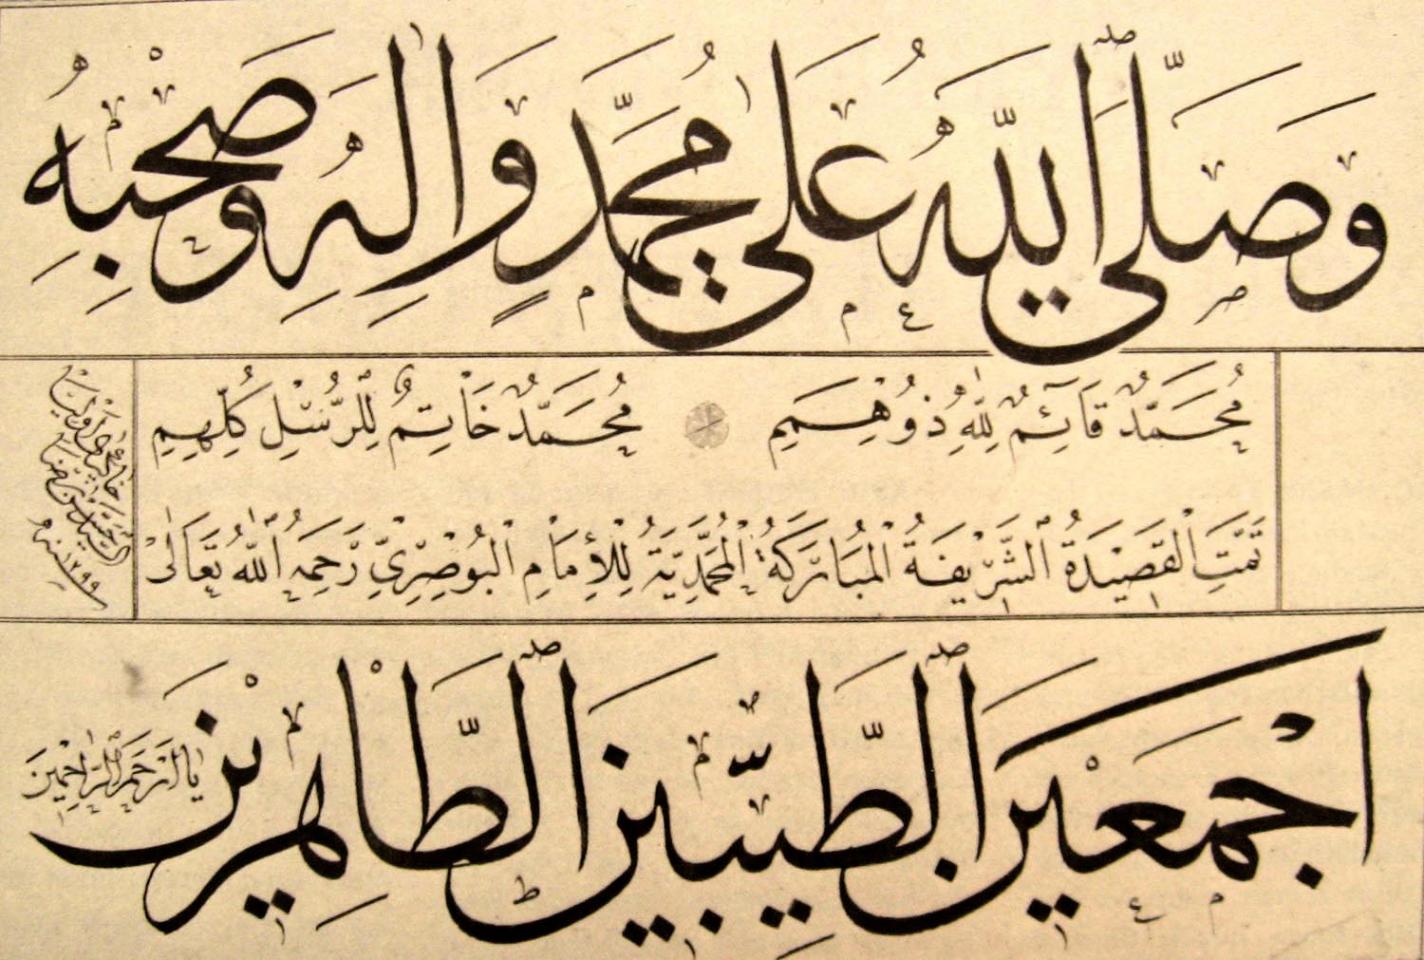 وَصَلَّى ٱللّٰهُ عَلَى مُحَمَّدٍ وَاٰلِهِ وَصَحْبِهِ
مُحَمَّدٌ قَائِمٌ لِلّٰهِ ذُو هِمَمِ مُحَمَّدٌ خَاتِمٌ لِلرُّسْلِ كُلِّهِمِ
تَمَّتِ الْقَصِيْدَةُ ٱلشَّرِيْفَةُ الْمُبَارَكَةُ الْمُحَمَّدِيَّةُ لِلْاِمَامِ الْبُوصِيْرِيّ رَحِمَهُ اللّٰهُ تَعَالٰى
اَجْمَعِيْنَ ٱلطَّيِّبِيْنَ ٱلطَّاهِرِيْنَ
يَا اَرْحَمَ ٱلرَّاحِمِيْنَ
سنه ١٢٩٩